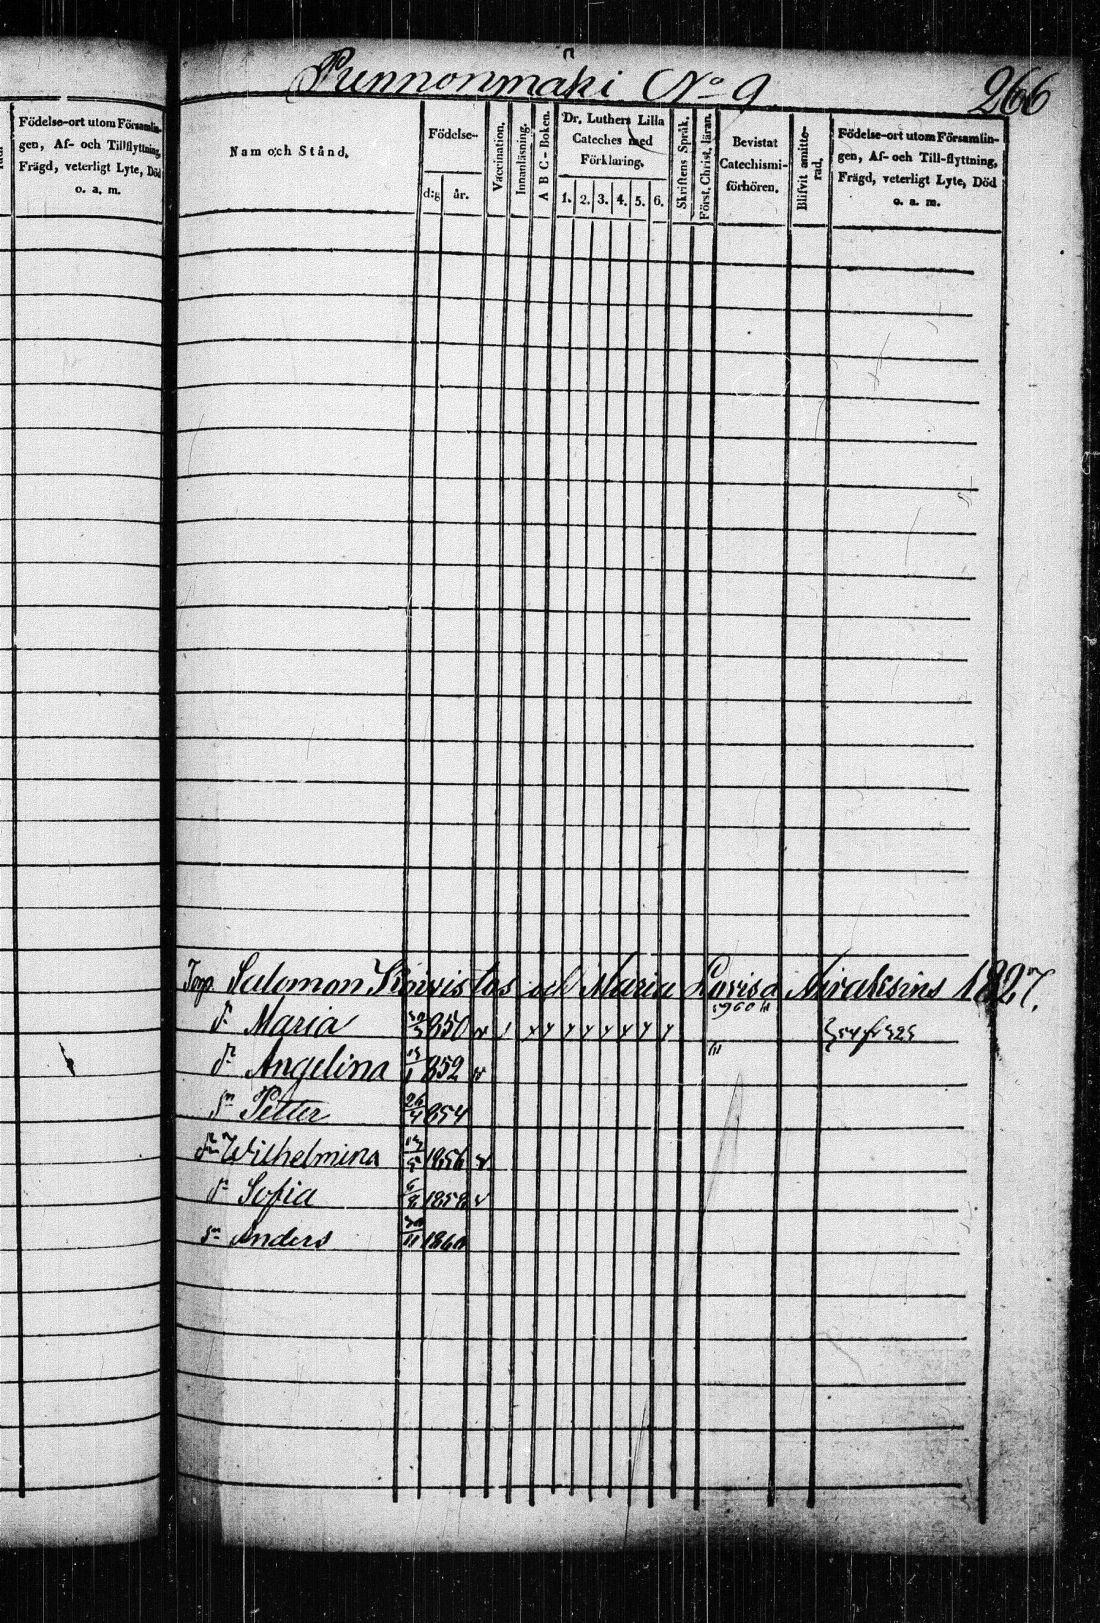 Punnonmäki No 9. 266
Födelse-ort utom Församlin-
gen, Af- och Tillflyttning,
Frägd, veterligt Lyte, Död
o. a. m.
Nam och Stånd.
Födelse-
d:g
år.
Vaccination.
Innanläsning.
A B C - Boken.
Dr. Luthers Lilla
Cateches med
Förklaring.
1. 2. 3. 4. 5. 6.
Skriftens Språk.
Först. Christ. läran.
Bevistat
Catechismi-
förhören.
Blifvit smitte-
rad.
Födelse-ort utom Församlin-
gen, Af- och Till-flyttning,
Frägd, veterligt Lyte, Död
o. a. m.
Torp. Salomon Koivistos och Maria Lovisa 1827.
dr Maria 850
dr Angelina 852
sn Petter 26/4 854
dr Wilhelmina 1856
dr Sofia 6/8 1858
sn Anders 1860